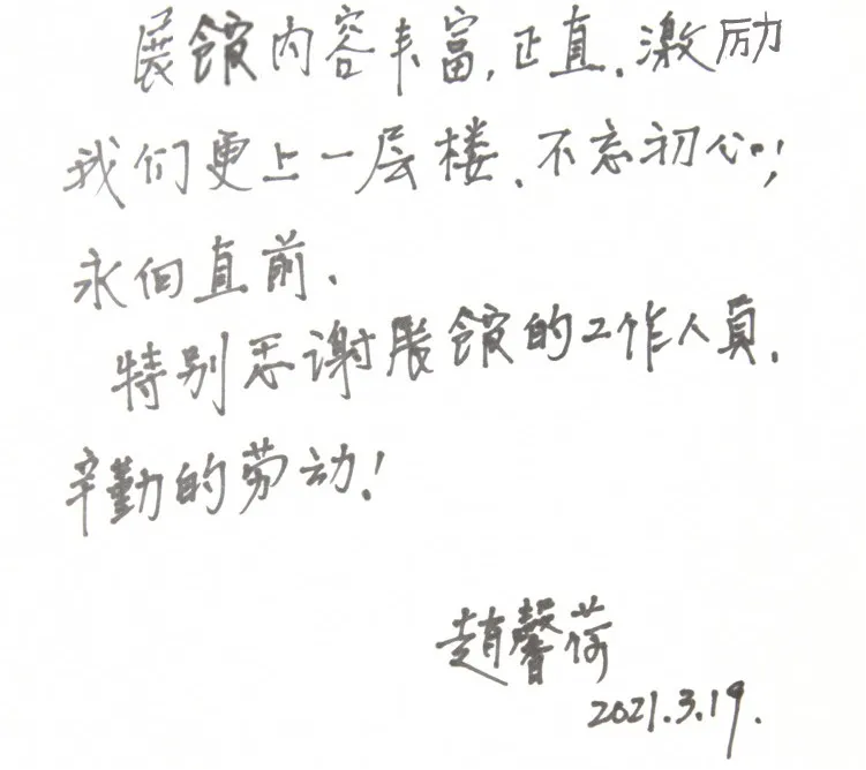 展馆内容丰富,正直.激励
我们更上一层楼.不忘初心!
永向直前.
特别感谢展馆的工作人员.
辛勤的劳动!
趙馨荷
2021.3.19.